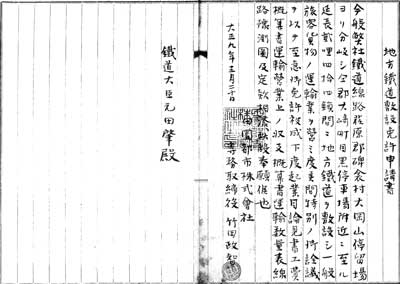 地方鐵道敷設免許申請書
今般弊社鐵道線路荏原郡碑衾村大岡山停留場
ヨリ分岐シ仝郡大崎町目黒停車場附近ニ至ル
延長貳哩四拾四鎖間ニ地方鐵道ヲ敷設シ一般
旅客貨物ノ運輸業ヲ營ミ度候間特別ノ御詮議
ヲ以テ至急御免許被成下度起業目論見書工費
概算書運輸營業上ノ収支概算書運輸数量表線
路豫測圖及定款相添此段奉願候也
大正九年三月三十日
田園都市株式會社
専務取締役 竹田政智
鐵道大臣元田肇殿